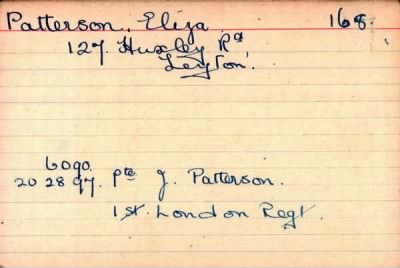 Patterson, Eliza. 168.
127. Huxley Rd
Leyton.
6090.
20 28 97. Pte J. Patterson.
1st. London Regt.